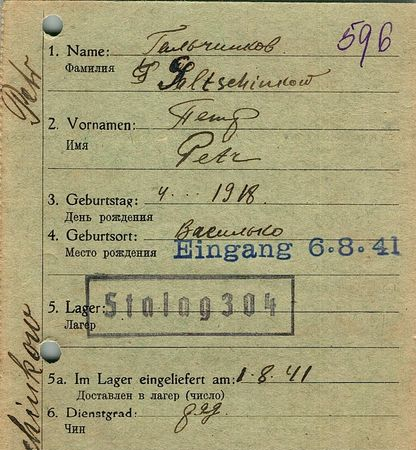 596
1. Name: Гальчинков
Фамилия Galtschinkow
2. Vornamen: Петр
Имя Petr
3. Geburtstag: 4 . . . 1918
День рождения
4. Geburtsort: Василько
Место рождения Eingang 6.8.41
5. Lager: Stalag 304
Лагер
5a. Im Lager eingeliefert am: 1.8.41
Доставлен в лагер (число)
6. Dienstgrad:
Чин
Petr
chinkow